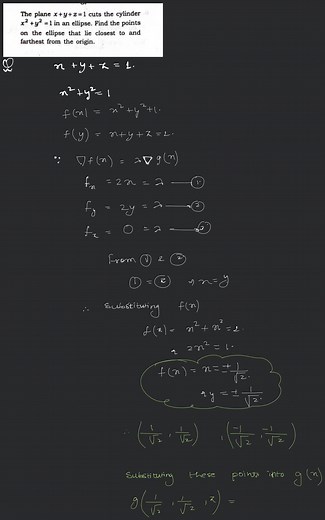 The plane x+y+z=1 cuts the cylinder
x²+y²=1 in an ellipse. Find the points
on the ellipse that lie closest to and
farthest from the origin.
x + y + z = 1.
x²+y²=1
f(x) = x²+y²+1.
f(y) = x+y+z=1.
∵ ∇f(x) = λ∇g(x)
fx = 2x = λ — ①
fy = 2y = λ — ②
fz = 0 = λ —
From ① & ②
① = ② ⇒ x=y
∴ Substituting f(x)
f(x) = x² + x² = 1.
2x² = 1.
f(x) = x = ± 1/√2.
y = ± 1/√2.
∴ (1/√2, 1/√2) , (-1/√2, -1/√2)
Substituting these points into g(x)
g(1/√2, 1/√2, z) =